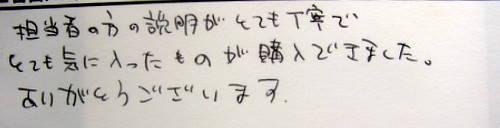 担当者の方の説明がとても丁寧で
とても気に入ったものが購入できました。
ありがとうございます.